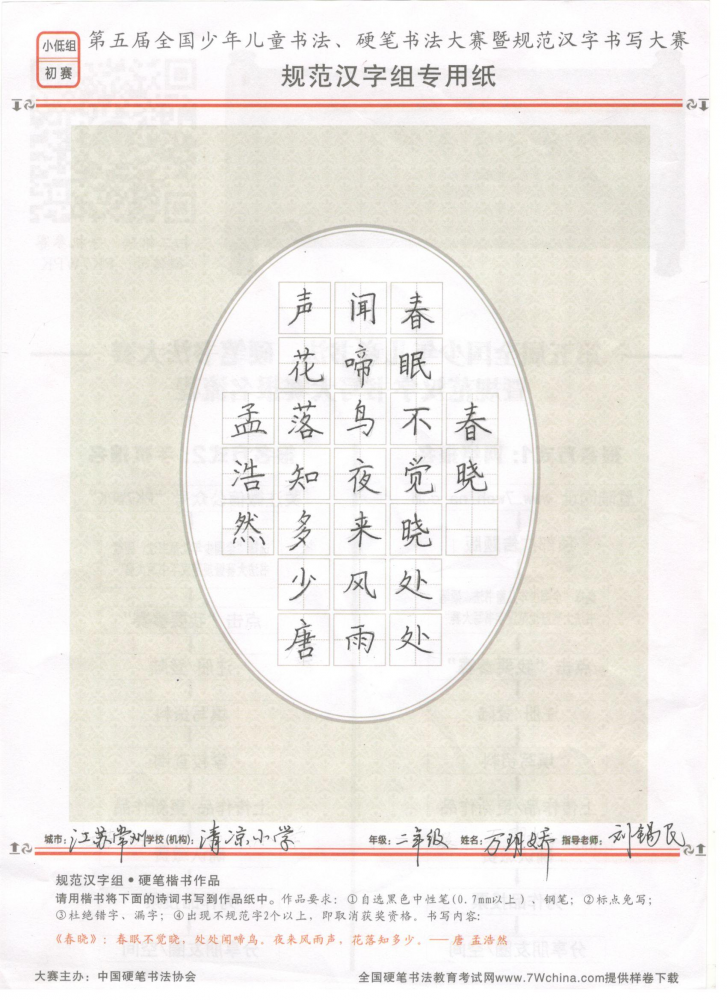 小低组
初赛
第五届全国少年儿童书法、硬笔书法大赛暨规范汉字书写大赛
规范汉字组专用纸
春晓
春眠不觉晓处处
闻啼鸟夜来风雨
声花落知多少唐
孟浩然
城市：江苏常州 学校(机构)：清凉小学 年级：二年级 姓名：万玥娇 指导老师：刘锡民
规范汉字组•硬笔楷书作品
请用楷书将下面的诗词书写到作品纸中。作品要求：①自选黑色中性笔(0.7mm以上)、钢笔；②标点免写；
③杜绝错字、漏字；④出现不规范字2个以上，即取消获奖资格。书写内容：
《春晓》：春眠不觉晓，处处闻啼鸟。夜来风雨声，花落知多少。——唐 孟浩然
大赛主办：中国硬笔书法协会 全国硬笔书法教育考试网www.7Wchina.com提供样卷下载